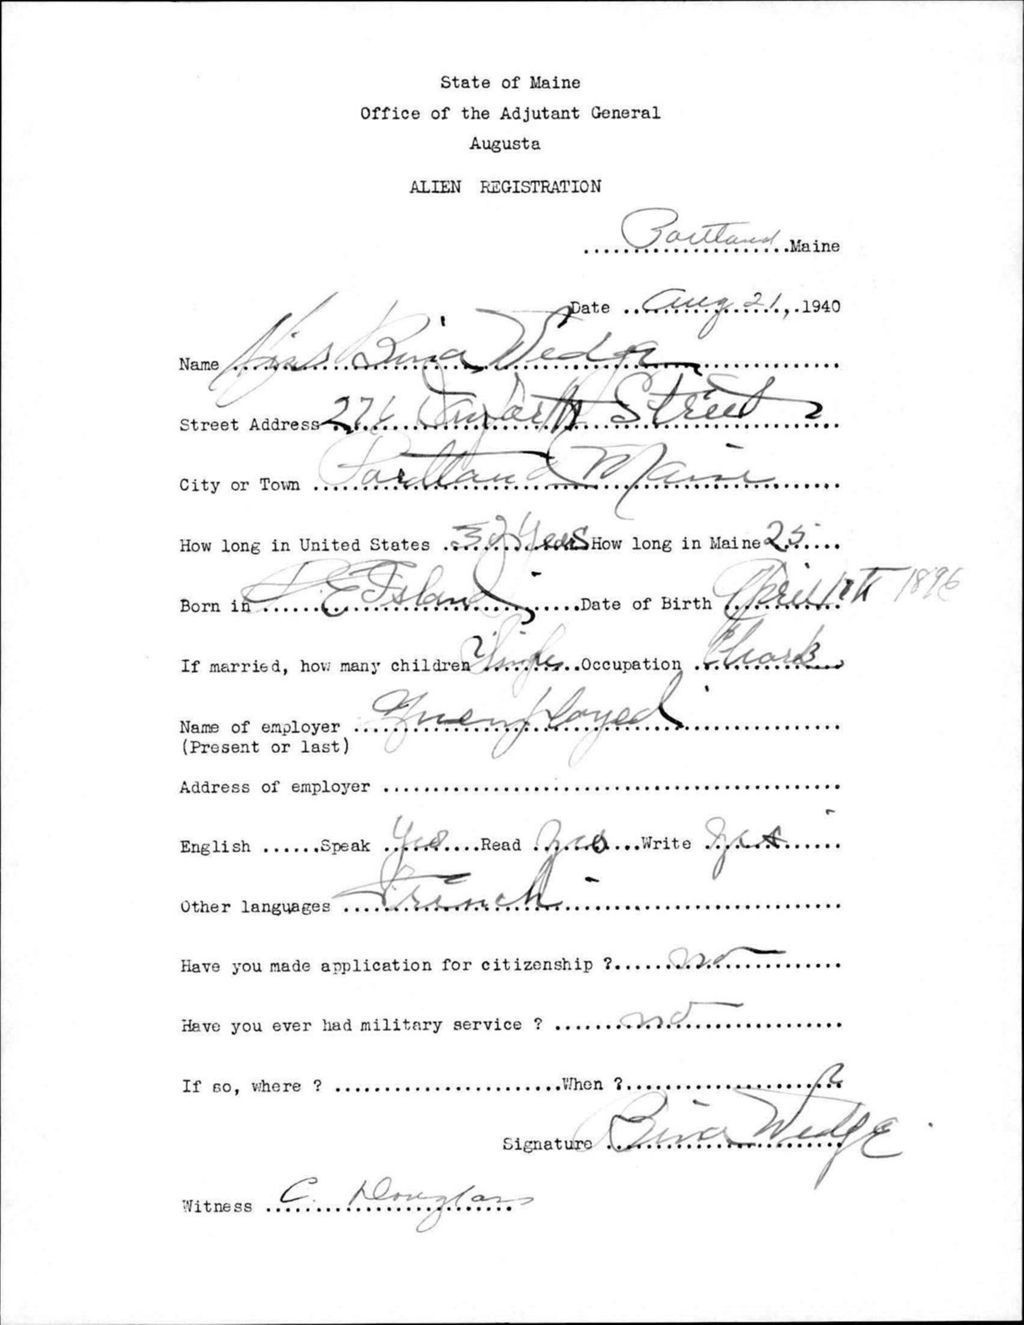 State of Maine
Office of the Adjutant General
Augusta
ALIEN REGISTRATION
Portland Maine
Date Aug 21, 1940
Name Miss Bina Wedge
Street Address 276 Street
City or Town Portland Maine
How long in United States Years How long in Maine 25
Born in P. E Island Date of Birth April 1896
If married, how many children Single Occupation
Name of employer Unemployed
(Present or last)
Address of employer
English Speak Yes Read Yes Write Yes
Other languages French
Have you made application for citizenship ? no
Have you ever had military service ? no
If so, where ? When ?
Signature Bina Wedge
Witness C. Douglass